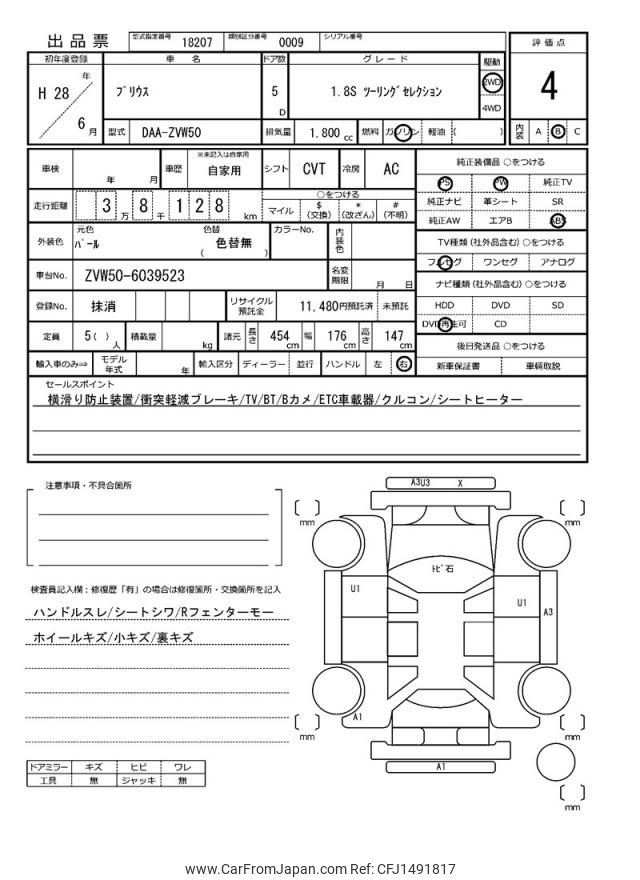 出品票 型式指定番号 18207 類別区分番号 0009 シリアル番号
評価点
4
初年度登録 車名 ドア数 グレード 駆動
H 28 年 6 月
プリウス 5 D 1.8S ツーリングセレクション 2WD 4WD
型式 DAA-ZVW50 排気量 1,800 cc 燃料 ガソリン 軽油 ( ) 内装 A B C
車検 年 月 車歴 ※未記入は自家用 自家用 シフト CVT 冷房 AC
純正装備品 ○をつける
PS PW 純正TV
純正ナビ 革シート SR
純正AW エアB ABS
走行距離 3 万 8 千 1 2 8 km
○をつける
マイル $ (交換) * (改ざん) # (不明)
外装色 元色 パール 色替 色替無 ( ) カラーNo. 内装色
TV種類 (社外品含む) ○をつける
フルセグ ワンセグ アナログ
車台No. ZVW50-6039523 名変期限 月 日
ナビ種類 (社外品含む) ○をつける
HDD DVD SD
DVD再生可 CD
登録No. 抹消 リサイクル預託金 11,480円預託済 未預託
定員 5 ( ) 人 積載量 kg 諸元 長さ 454 cm 幅 176 cm 高さ 147 cm
後日発送品 ○をつける
新車保証書 車輌取説
輸入車のみ⇒ モデル年式 年 輸入区分 ディーラー 並行 ハンドル 左 右
セールスポイント
横滑り防止装置/衝突軽減ブレーキ/TV/BT/Bカメ/ETC車載器/クルコン/シートヒーター
注意事項・不具合箇所
検査員記入欄:修復歴「有」の場合は修復箇所・交換箇所を記入
ハンドルスレ/シートシワ/Rフェンターモー
ホイールキズ/小キズ/裏キズ
ドアミラー キズ ヒビ ワレ
工具 無 ジャッキ 無
A3U3 X
mm
mm
トビ石
U1
U1
A3
A1
mm
mm
A1
mm
www.CarFromJapan.com Ref: CFJ1491817